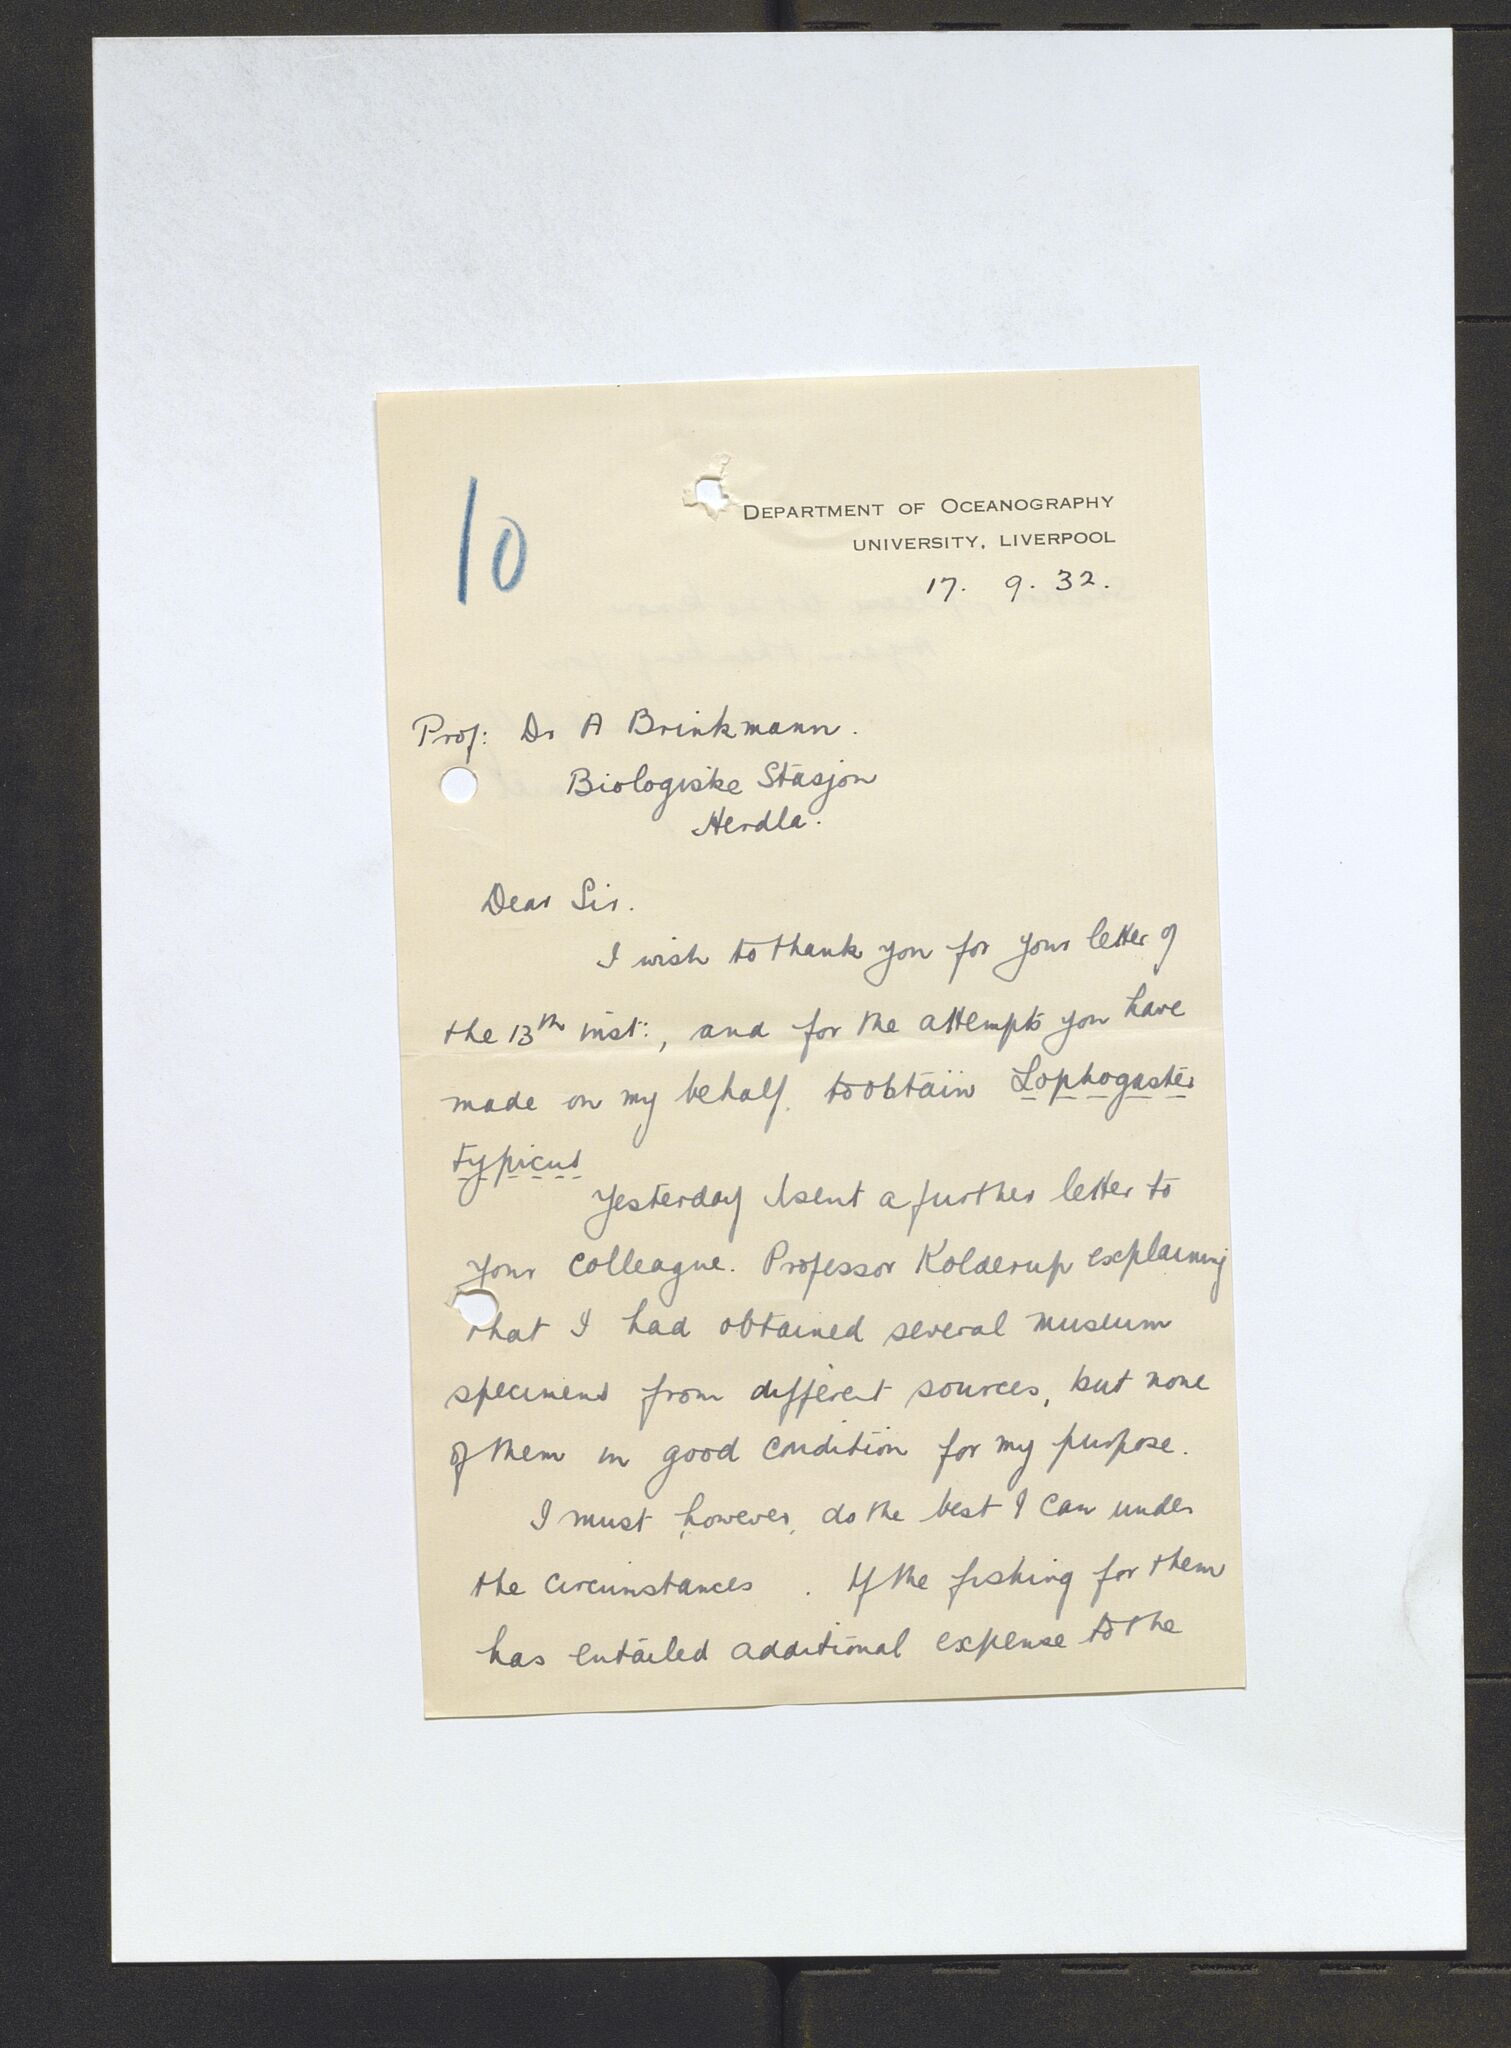 10
DEPARTMENT OF OCEANOGRAPHY
UNIVERSITY, LIVERPOOL
17. 9. 32.
Prof: Dr A Brinkmann.
Biologiske Stasjon
Herdla.
Dear Sir.
I wish to thank you for your letter of
the 13th inst:, and for the attempts you have
made on my behalf. to obtain Lophogaster
typicus
Yesterday I sent a further letter to
your colleague. Professor Kolderup explaining
that I had obtained several museum
specimens from different sources, but none
of them in good condition for my purpose.
I must, however, do the best I can under
the circumstances. If the fishing for them
has entailed additional expense to the